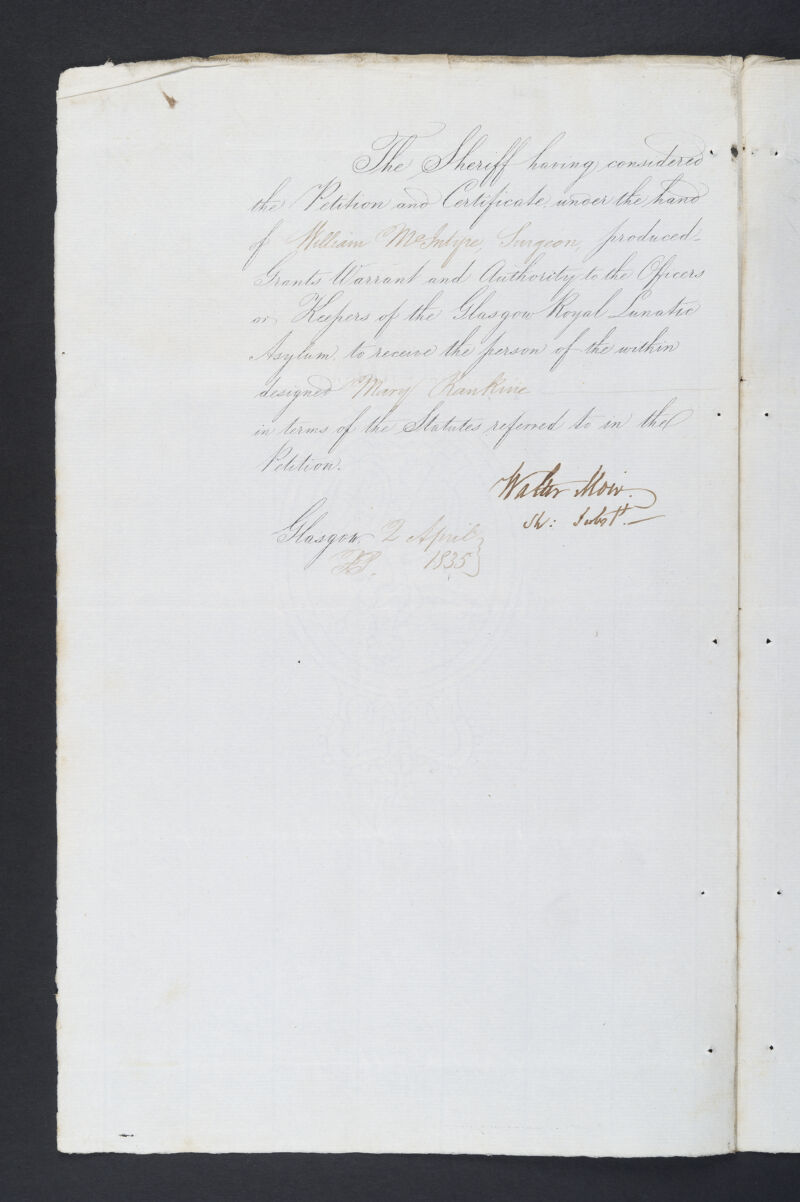 The Sheriff having considered
the Petition and Certificate under the hand
of William McIntyre, Surgeon, produced -
Grants Warrant and Authority to the Officers
or Keepers of the Glasgow Royal Lunatic
Asylum, to receive the person of the within
designed Mary Rankine
in terms of the Statutes referred to in the
Petition.
Walter Moir.
Sh: Subst.
Glasgow 2 April
1835